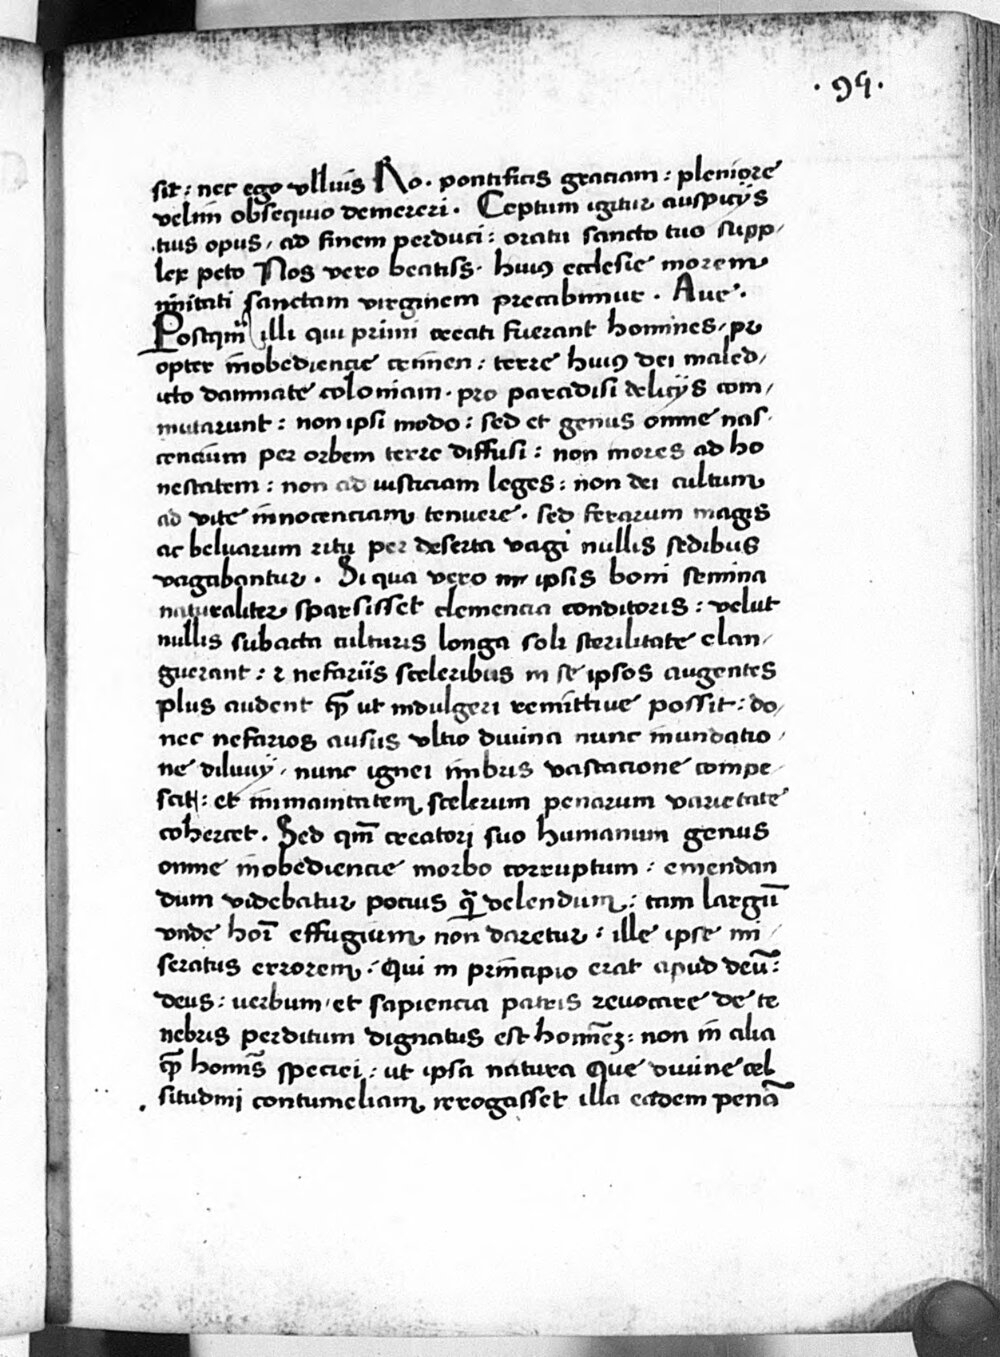 · 95 ·
sit : nec ego ullius Ro. pontificis graciam : pleniore
velim obsequio demereri . Ceptum igitur auspicijs
tuis opus, ad finem perduci : oratu sancto tuo supp,
lex peto Nos vero beatiss. huiꝰ ecclesie morem
imitati sanctam virginem precabimur . Aue .
Postqm̄ illi qui primi creati fuerant homines, pr
opter inobediencie crimen : terre huiꝰ dei maled,
icto damnate coloniam . pro paradisi delicijs com,
mutarunt : non ipsi modo : sed et genus omne nas
cencium per orbem terre diffusi : non mores ad ho
nestatem : non ad iusticiam leges : non dei cultum
ad vite innocenciam tenuere . sed ferarum magis
ac beluarum ritu per deserta vagi nullis sedibus
vagabantur . Si qua vero in ipsis boni semina
naturaliter sparsisset clemencia conditoris : velut
nullis subacta culturis longa soli sterilitate elan,
guerant : ⁊ nefariis sceleribus in se ipsos augentes
plus audent qm̄ ut indulgeri remittive possit : do,
nec nefarios ausus ultio divina nunc inundatio,
ne diluvij, nunc ignei imbris vastacione compe,
scit : et immanitatem scelerum penarum varietate
cohercet . Sed qm̄ creatori suo humanum genus
omne inobediencie morbo corruptum : emendan
dum videbatur pocius q̄ delendum : tam largū
unde hoī effugium non daretur : ille ipse mi,
seratus errorem . Qui in principio erat apud deū :
deus : verbum, et sapiencia patris revocare de te
nebris perditum dignatus est hominē : non in alia
qm̄ homīs speciei : ut ipsa natura Que divine cel
situdini contumeliam irrogasset illa eadem penā